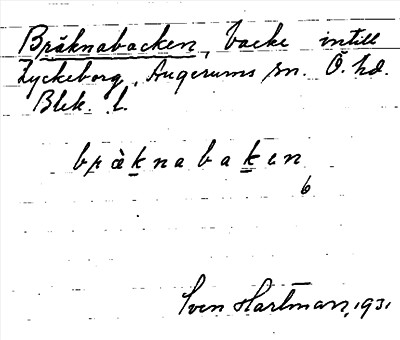 Bräknabacken, backe intill
Lyckeborg, Augerums sn. Ö. hd.
Blek. l.
bràknabaken
6
Sven Hartman, 1931